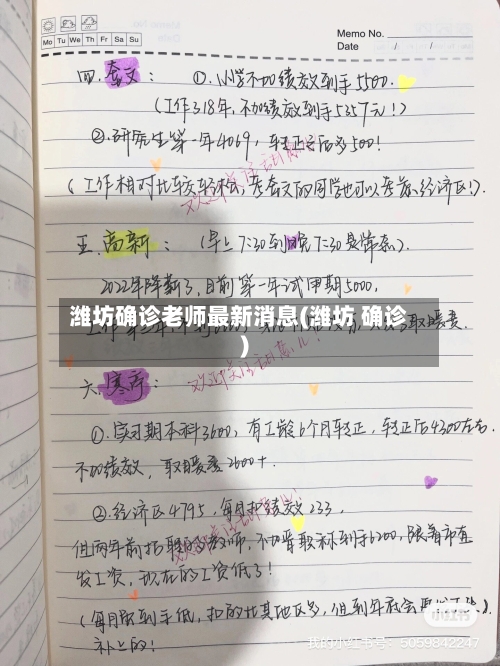 Memo No.
Mo Tu We Th Fr Sa Su
Date / /
四.奎文: ①.小学不加绩效到手5500.
(工作318年,不加绩效到手5357元!)
②.研究生第一年4069,转正后多500!
(工作相对比较轻松,考奎文的同学也可以考虑经济区!).
五.高新: (早上7:30到晚7:30是常态).
2022年降薪了,目前第一年试用期5000,
取暖费.
潍坊确诊老师最新消息(潍坊 确诊
)
六.寒亭:
①.实习期本科3600,有工龄6个月转正,转正后4300左右.
不加绩效,取暖费2600+.
②.经济区4795,每月扣绩效233,
但两年前招聘的教师,不加晋职称到手6200,跟着市直
发工资,现在的工资低了!
(每月到手低,扣的比其他区多,但到年底会
补上的!
小红书
我的小红书号: 5059842247